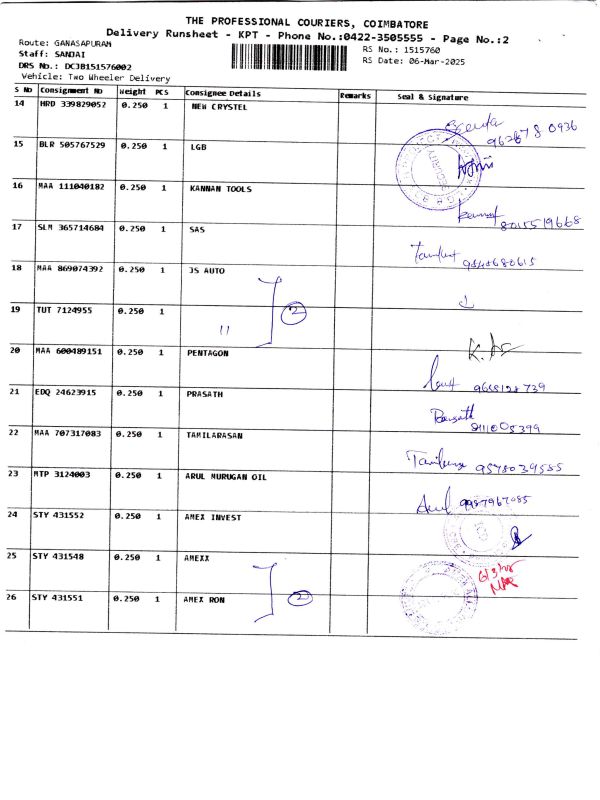 THE PROFESSIONAL COURIERS, COIMBATORE
Delivery Runsheet - KPT - Phone No.:0422-3505555 - Page No.:2
Route: GANASAPURAM
Staff: SANJAI
DRS No.: DCJB151576002
Vehicle: Two Wheeler Delivery
RS No.: 1515760
RS Date: 06-Mar-2025
S No Consignment No Weight PCS Consignee Details Remarks Seal & Signature
14 HRD 339829052 0.250 1 NEW CRYSTEL
15 BLR 505767529 0.250 1 LGB
16 MAA 111040182 0.250 1 KANNAN TOOLS
8015519668
17 SLM 365714684 0.250 1 SAS
18 MAA 869074392 0.250 1 JS AUTO
2
19 TUT 7124955 0.250 1 11
20 MAA 600489151 0.250 1 PENTAGON
21 EDQ 24623915 0.250 1 PRASATH
22 MAA 707317083 0.250 1 TAMILARASAN
9578039585
23 MTP 3124003 0.250 1 ARUL MURUGAN OIL
Arul 9987967085
24 STY 431552 0.250 1 AMEX INVEST
25 STY 431548 0.250 1 AMEXX
26 STY 431551 0.250 1 AMEX RON 2